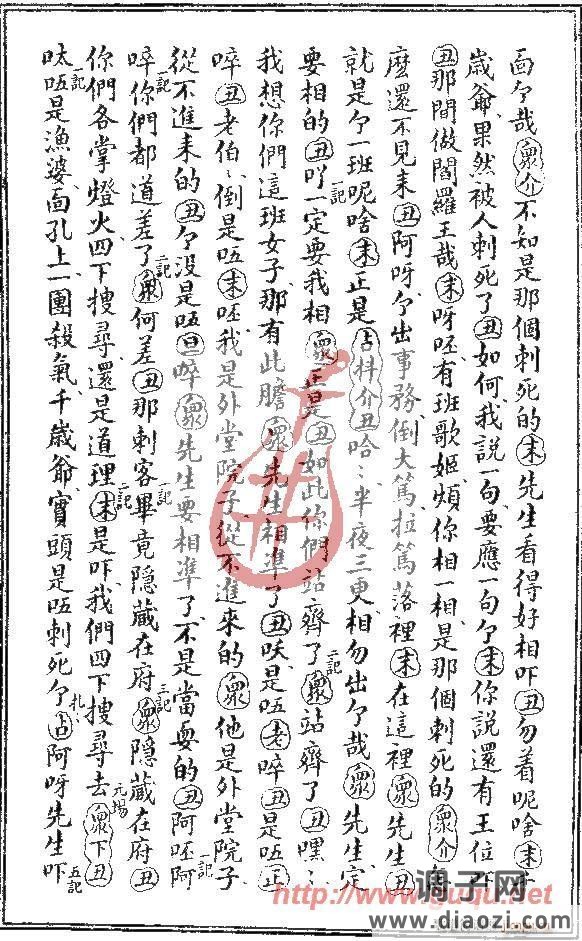 面亇哉衆介不知是那個刺死的末先生看得好相吓丑勿着呢啥末千
歲爺果然被人刺死了丑如何我說一句要應一句亇末你說還有王位
丑那間做閻羅王哉末呀呸有班歌姬煩你相一相是那個刺死的衆介
麽還不見来丑阿呀亇出事務倒大篤拉篤落裡末在這裡衆先生丑
就是亇一班呢啥末正是占抖介丑哈〻半夜三更相勿出亇哉衆先生定
要相的丑吖一定要我相衆正是丑如此你們站齊了衆站齊了丑嘿〻
我想你們這班女子那有此膽衆先生相準了丑呔是唔老啐丑是唔正
啐丑老伯〻倒是唔末呸我是外堂院子從不進來的衆他是外堂院子
從不進来的丑亇没是唔旦啐衆先生要相準了不是當耍的丑阿呸阿
啐你們都道差了衆何差丑那刺客畢竟隐蔵在府衆隐蔵在府丑
你們各掌燈火四下搜尋還是道理末是吓我們四下搜尋去衆下丑
呔唔是漁婆面孔上一團殺氣千歲爺實頭是唔刺死亇占阿呀先生吓
一記
一記
一記
一記
一記
二記
三記
一記
五記
元場
扎〻
www.guqu.net
调子网
www.diaozi.com